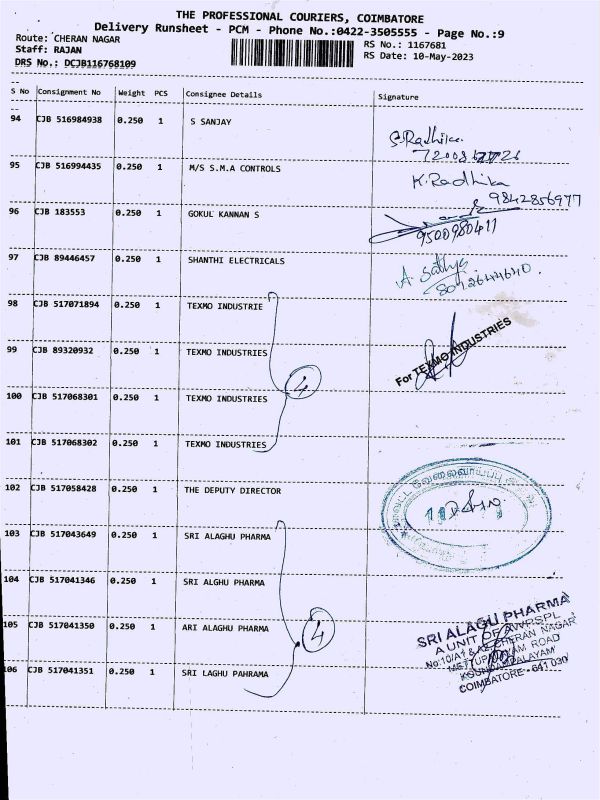 THE PROFESSIONAL COURIERS, COIMBATORE
Delivery Runsheet - PCM - Phone No.:0422-3505555 - Page No.:9
Route: CHERAN NAGAR
Staff: RAJAN
DRS No.: DCJB116768109
RS No.: 1167681
RS Date: 10-May-2023
S No Consignment No Weight PCS Consignee Details Signature
94 CJB 516984938 0.250 1 S SANJAY
S.Radhika
95 CJB 516994435 0.250 1 M/S S.M.A CONTROLS
K.Radhika
9842856977
96 CJB 183553 0.250 1 GOKUL KANNAN S
9500980411
97 CJB 89446457 0.250 1 SHANTHI ELECTRICALS
A. Sathya
98 CJB 517071894 0.250 1 TEXMO INDUSTRIE
99 CJB 89320932 0.250 1 TEXMO INDUSTRIES
For TEXMO INDUSTRIES
4
100 CJB 517068301 0.250 1 TEXMO INDUSTRIES
101 CJB 517068302 0.250 1 TEXMO INDUSTRIES
102 CJB 517058428 0.250 1 THE DEPUTY DIRECTOR
103 CJB 517043649 0.250 1 SRI ALAGHU PHARMA
104 CJB 517041346 0.250 1 SRI ALGHU PHARMA
105 CJB 517041350 0.250 1 ARI ALAGHU PHARMA
4
106 CJB 517041351 0.250 1 SRI LAGHU PAHRAMA
SRI ALAGU PHARMA
A UNIT OF AWPSPL
No.10/A1 & A2, CHERAN NAGAR
METTUPALAYAM ROAD
KOUNDAMPALAYAM
COIMBATORE - 641 030